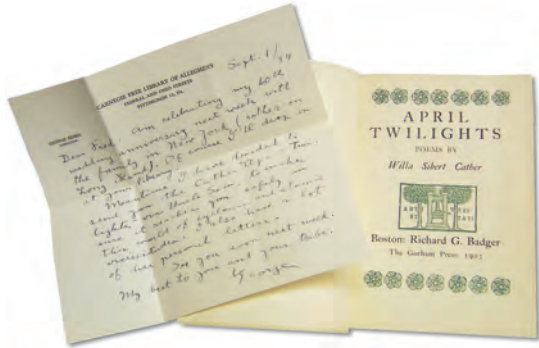 Sept. 1/54
CARNEGIE FREE LIBRARY OF ALLEGHENY
FEDERAL AND OHIO STREETS
PITTSBURGH 12, PA.
Dear Fred, Am celebrating my 60th
wedding anniversary next week with
the family in New York (rather on
Long Island). Of course I'll drop in
at your library.
Meantime I have decided to
send you the Cather Apr. Twi-
lights via Uncle Sam, to make
sure it reaches you safely in
this world of cyclonic and atomic
vicissitudes. I also have a lot
of her personal letters.
See you soon next week.
My best to you and your tribe.
George
APRIL
TWILIGHTS
POEMS BY
Willa Sibert Cather
ARTI
VERI
TATI
Boston: Richard G. Badger
The Gorham Press 1903